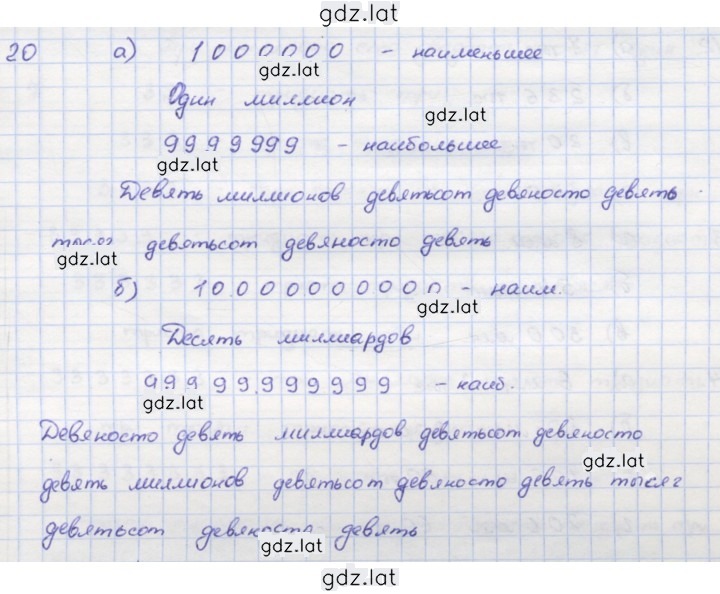 gdz.lat
20 а) 1000000 - наименьшее
gdz.lat
Один миллион
gdz.lat
9999999 - наибольшее
gdz.lat
Девять миллионов девятьсот девяносто девять
девятьсот девяносто девять
gdz.lat
б) 10000000000 - наим.
gdz.lat
Десять миллиардов
99999999999 - наиб.
gdz.lat
Девяносто девять миллиардов девятьсот девяносто
gdz.lat
девять миллионов девятьсот девяносто девять тысяч
девятьсот девяносто девять
gdz.lat
gdz.lat